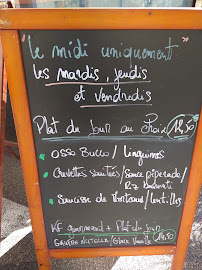 Le midi uniquement
les mardis, jeudis
et vendredis
Plat du Jour au Choix 12,50
OSSO BUCCO / Linguines
Crevettes sautées / sauce piperade /
Riz basmati
Saucisse de Montbard / Lentilles
KF gourmand + Plat du Jour
GAUFRE NUTELLA / Glace Vanille 14,50